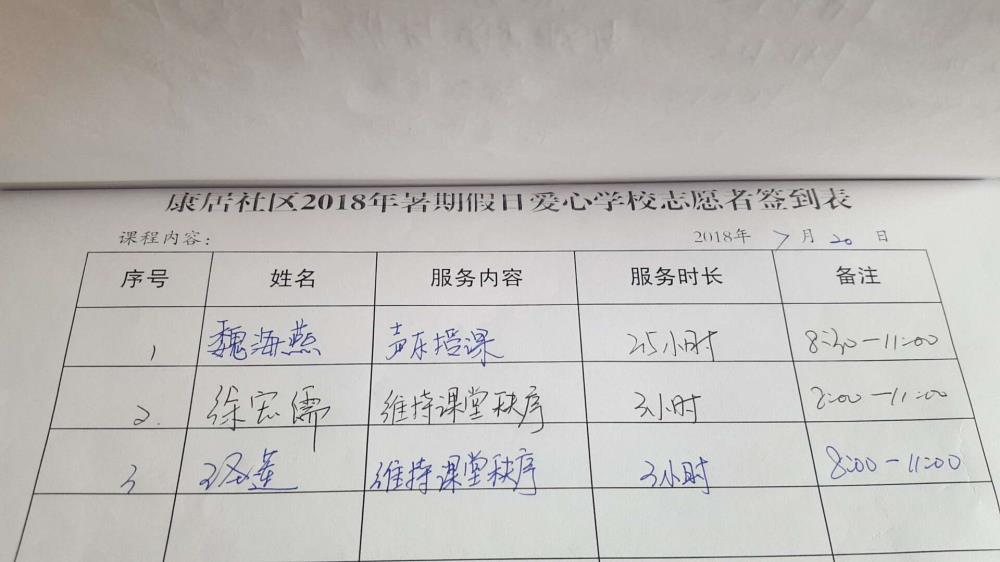 康居社区2018年暑期假日爱心学校志愿者签到表
课程内容: 2018年 7 月 20 日
序号 姓名 服务内容 服务时长 备注
1 魏海燕 声乐授课 2.5小时 8:30-11:00
2. 徐宏儒 维持课堂秩序 3小时 8:00-11:00
3 莲 维持课堂秩序 3小时 8:00-11:00